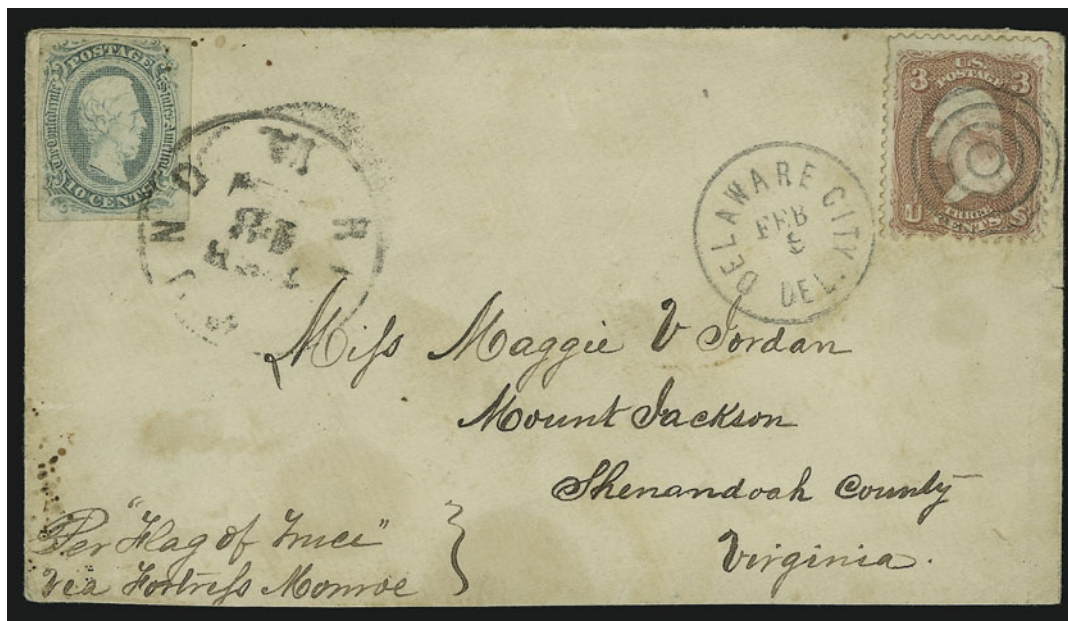 POSTAGE
The Confederate States of America
10 CENTS
U.S.
POSTAGE
3 3
THREE
CENTS
U S
DELAWARE CITY.
FEB
5
DEL.
Miſs Maggie V Jordan
Mount Jackson
Shenandoah County
Virginia.
Per "Flag of Truce"
via Fortreſs Monroe